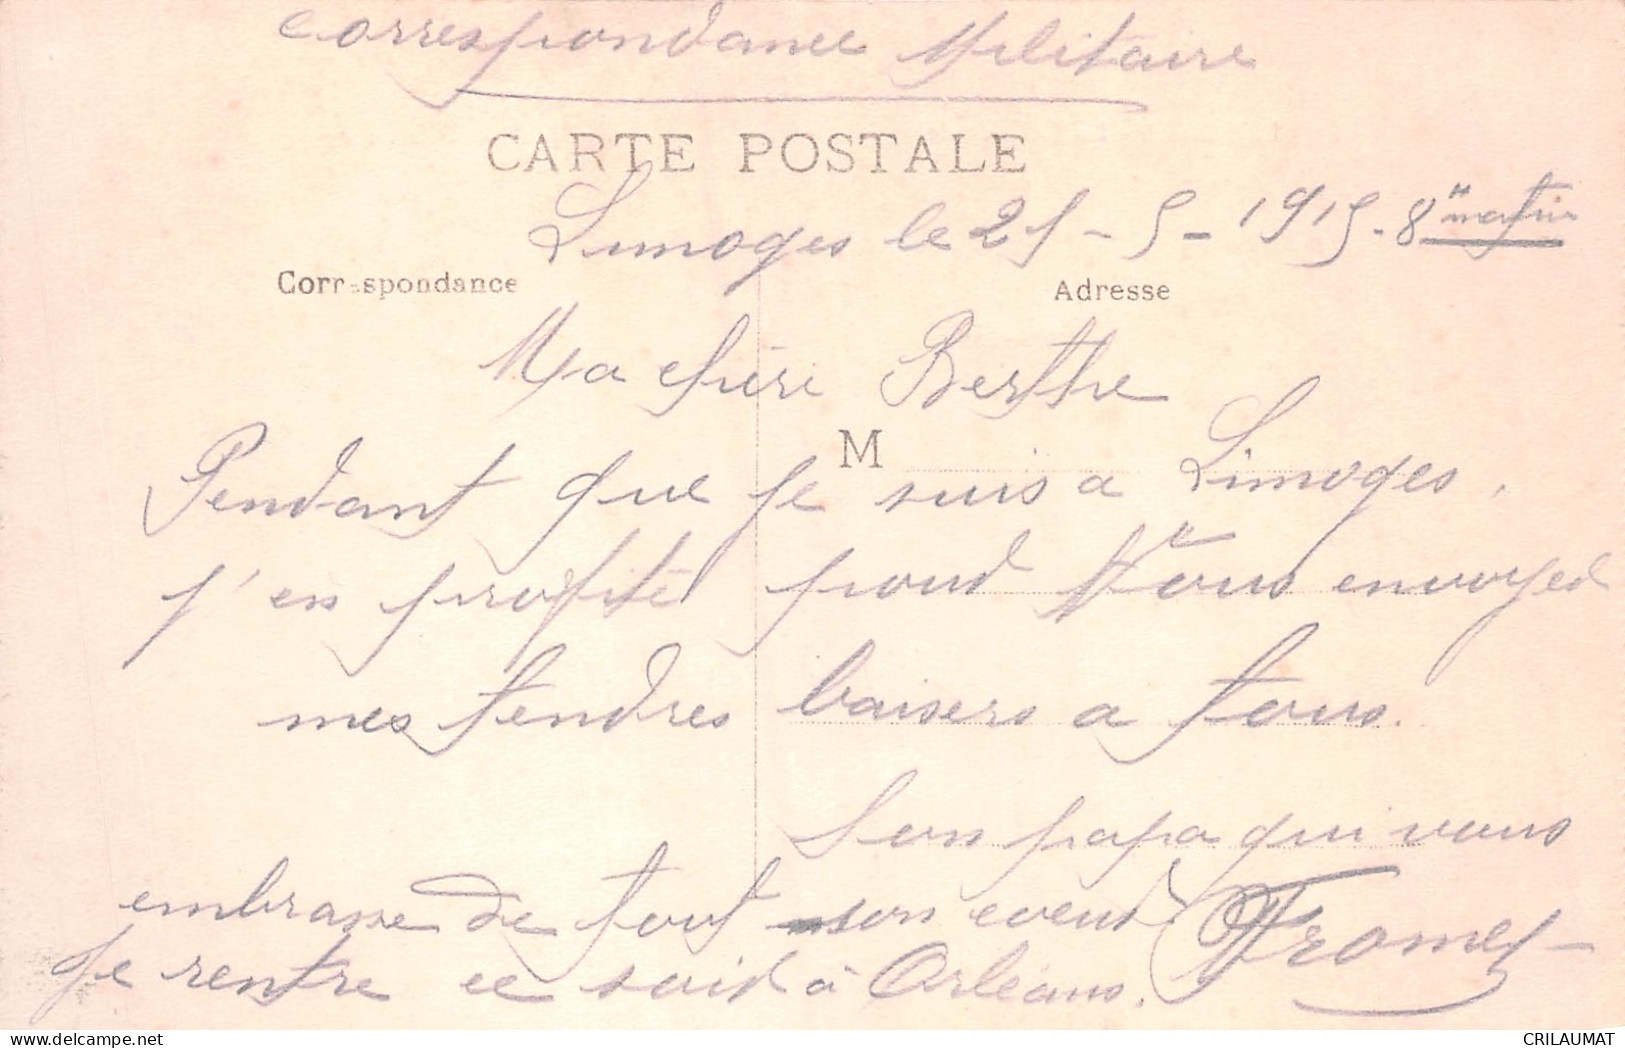 Correspondance Militaire
CARTE POSTALE
Limoges le 25-5-1915. 8h matin
Correspondance
Adresse
Ma chère Berthe
M
Pendant que je suis a Limoges,
j'en profite pour vous envoyer
mes tendres baisers a tous.
Ton papa qui vous
embrasse de tout son coeur
Je rentre ce soir à Orléans.
CRILAUMAT